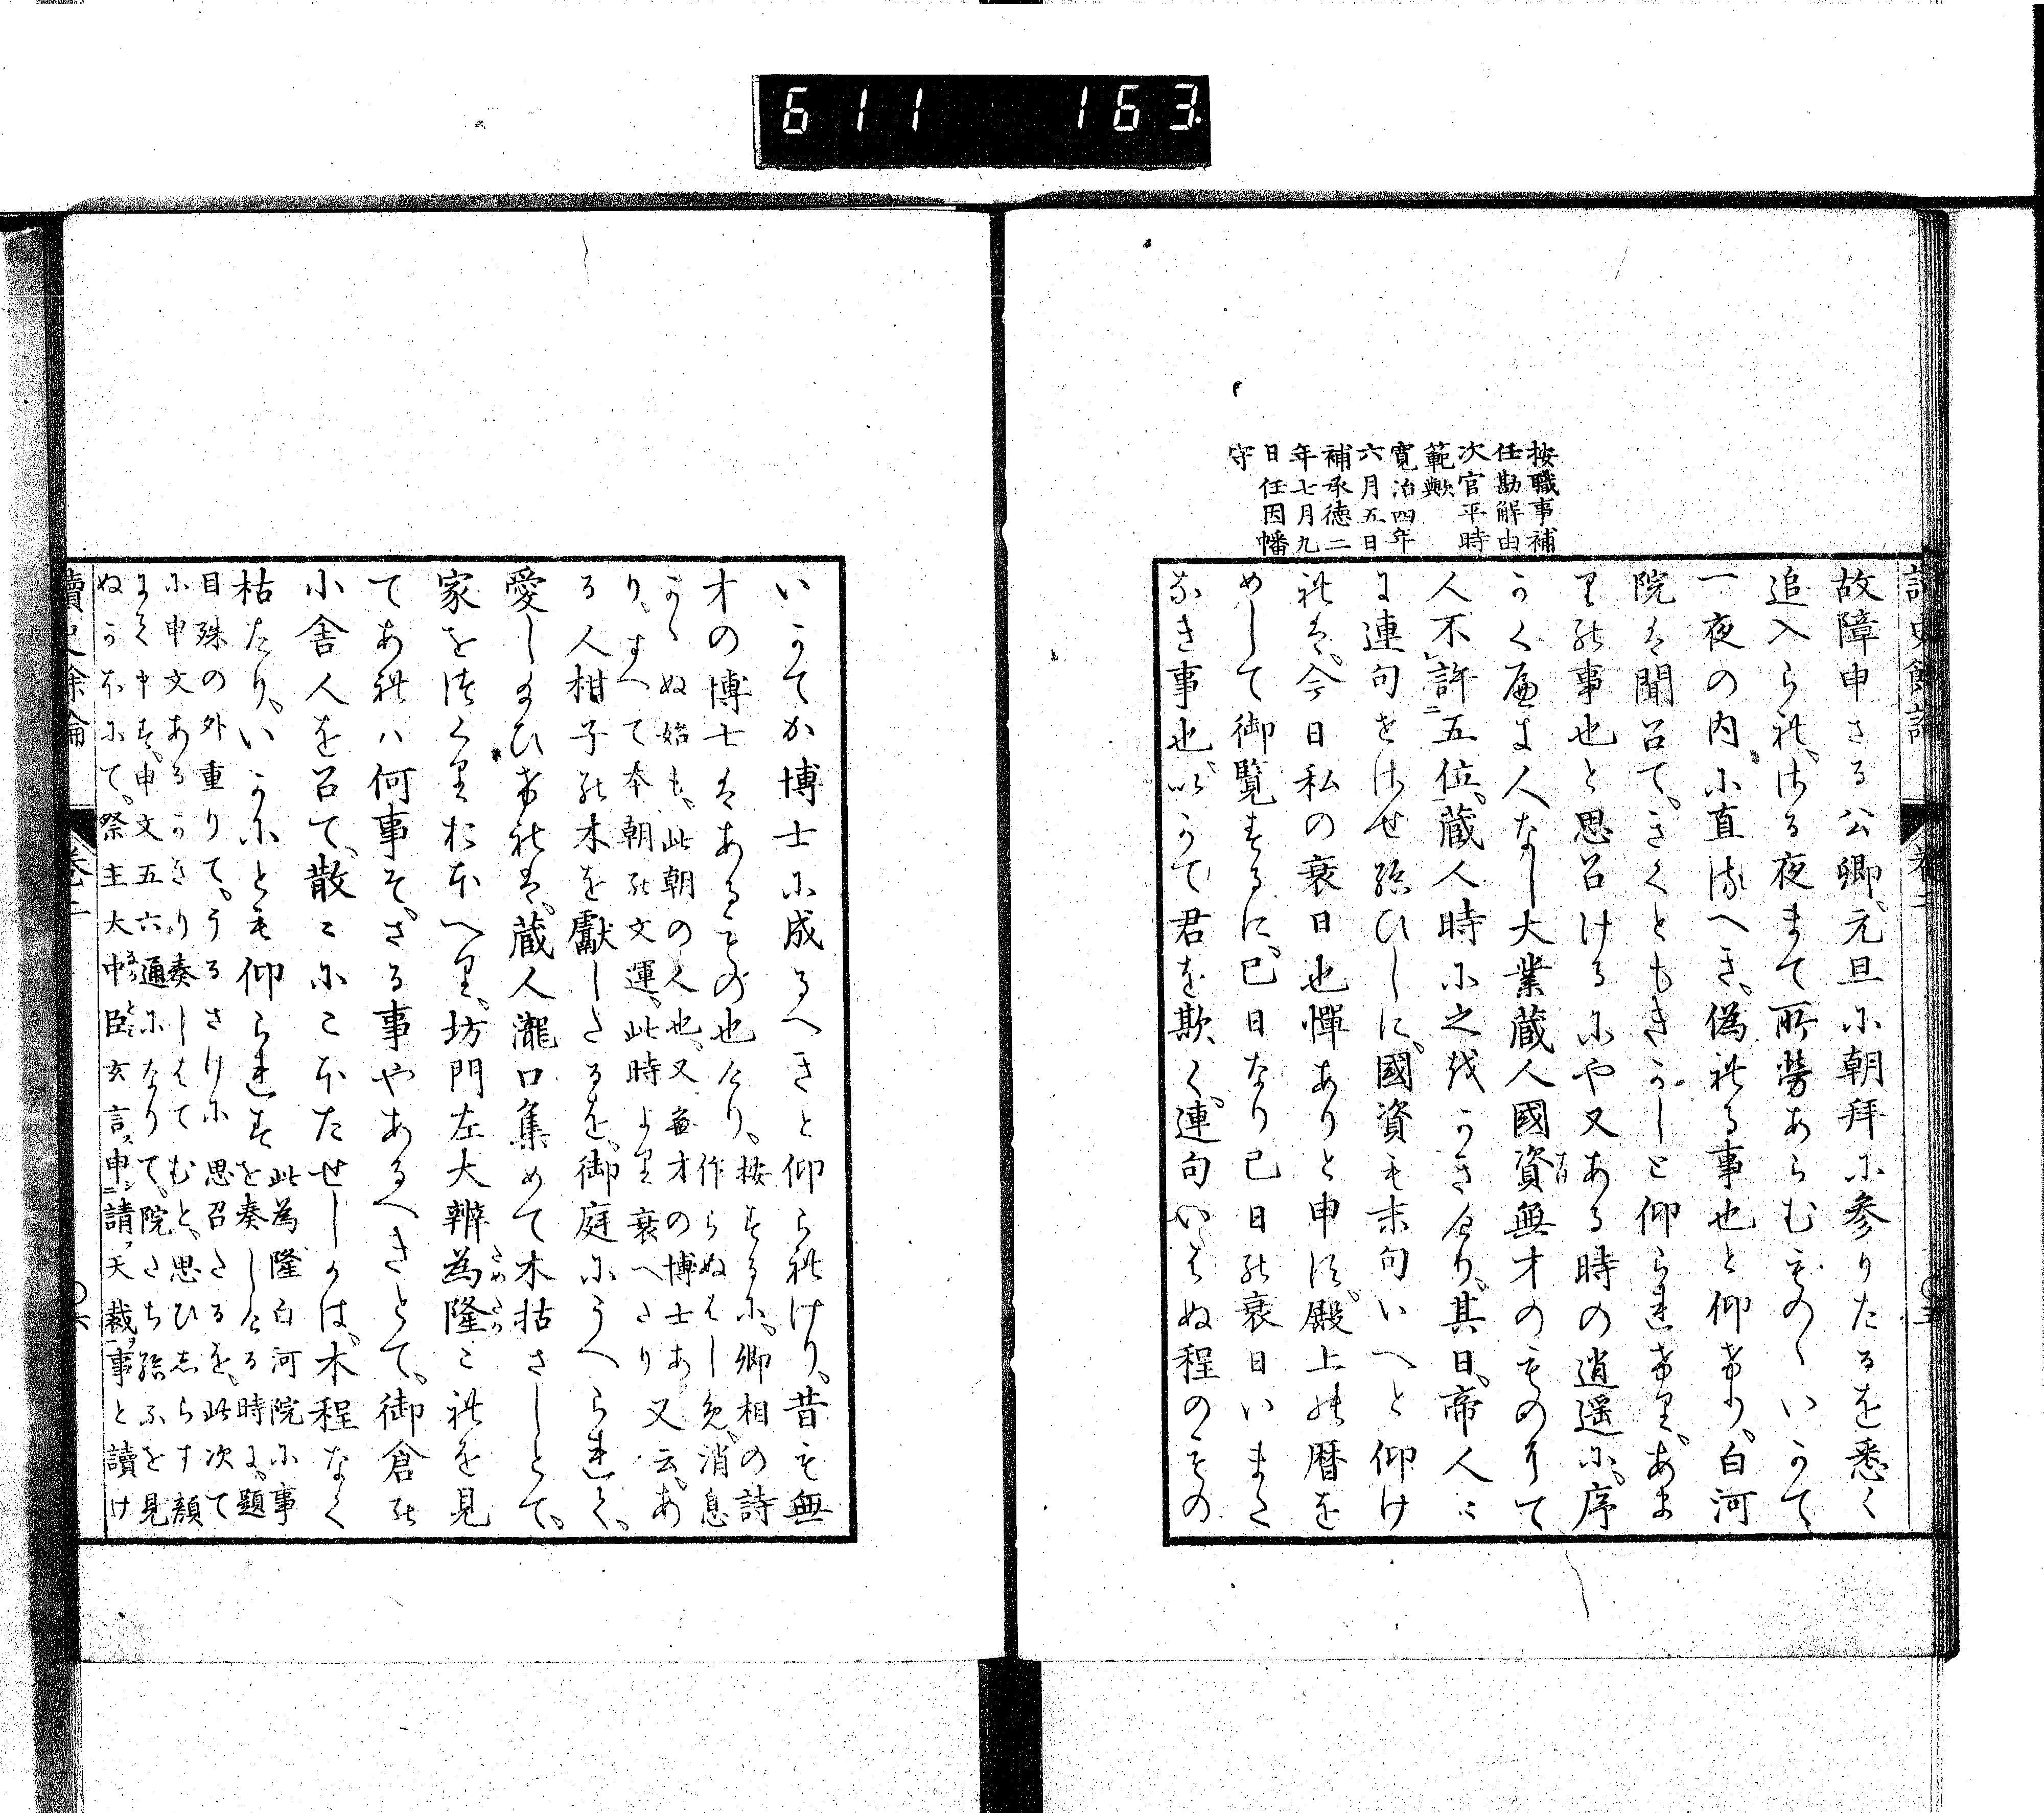 611 163
按職事補
任勘解由
次官平時
範歟
寛治四年
六月五日
補承徳二
年七月九
日任因幡
守
讀史餘論 卷二
故障申さる公卿、元旦に朝拜に參りたるを悉く
追入られ、ける夜まて所勞あらむものゝいかて
一夜の内に直るへき、偽れる事也と仰けり、白河
院は聞召て、きくともきかしと仰られけり、あま
りの事也と思召けるにや又ある時の逍遥に、序
かく廉き人なし大業蔵人國資無才のものにて
人不許五位蔵人時に之哉かきけり、其日、帝人に
に連句をさせ給ひしに、國資も末句いへと仰け
れは、今日私の衰日也憚ありと申す、殿上の暦を
めして御覧するに、巳日なり巳日の衰日いまた
なき事也、いかて君を欺く、連句いはぬ程のもの
いかてか博士に成るへきと仰られけり、昔も無
才の博士はあるもの也けり、按するに、卿相の詩
作らぬはし免、消息
かゝぬ始も、此朝の人也、又無才の博士あ
り、すへて本朝の文運、此時より衰へたり又云、あ
る人柑子の木を獻したるを、御庭にうへられて、
愛し給ひけれは、蔵人瀧口集めて木枯さしとて、
家をつくりおほへり、坊門左大辨為隆これを見
てあれハ何事そ、さる事やあるへきとて、御倉の
小舎人を召て、散々にこほたせしかは、木程なく
枯たり、いかにとも仰られす 此為隆白河院に事
を奏しける時に、題
目殊の外重りて、うるさけに思召さるを、此次て
に申文あるかきり奏しはてむと、思ひしらす顔
にて申す、申文五六通になりて、院さたち給ふを見
ぬかほにて、祭主大中臣玄言申請天裁事と讀け
讀史餘論 卷二